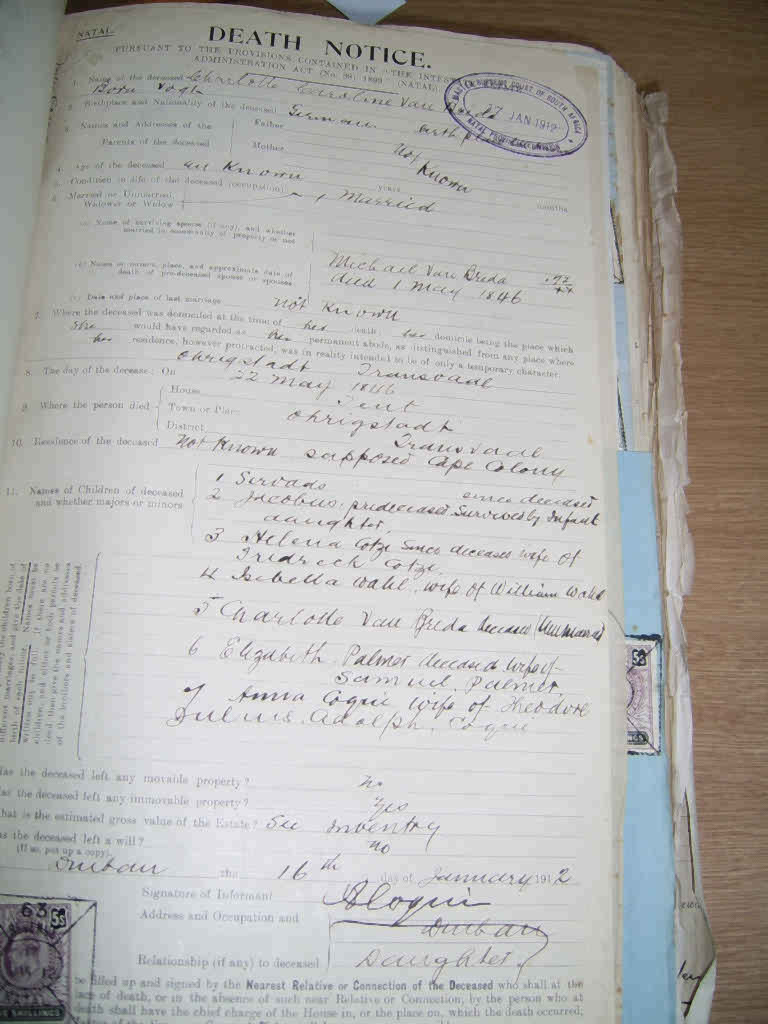 NATAL.
DEATH NOTICE.
PURSUANT TO THE PROVISIONS CONTAINED IN "THE INTEST
ADMINISTRATION ACT (No. 38) 1899" (NATAL)
1. Name of the deceased Charlotte Caroline Van Breda
Born Vogt
2. Birthplace and Nationality of the deceased German birth place
3. Names and Addresses of the Parents of the deceased
Father
Mother Not Known
MASTER SUPREME COURT OF SOUTH AFRICA
17 JAN 1912
NATAL
4. Age of the deceased un Known years months
5. Condition in life of the deceased (occupation)
6. Married or Unmarried, Widower or Widow Married
(a) Name of surviving spouse (if any), and whether married in community of property or not
(b) Name or names, place, and approximate date of death of pre-deceased spouse or spouses
Michael Van Breda
died 1 May 1846
(c) Date and place of last marriage not Known
7. Where the deceased was domiciled at the time of her death, her domicile being the place which
She would have regarded as her permanent abode, as distinguished from any place where
her residence, however protracted, was in reality intended to be of only a temporary character.
Ohrigstadt Transvaal
8. The day of the decease: On 22 May 1846
9. Where the person died
House Tent
Town or Place Ohrigstadt
District Transvaal
10. Residence of the deceased Not Known supposed Cape Colony
11. Names of Children of deceased and whether majors or minors
1 Servaas since deceased
2 Jacobus predeceased Survived by Infant
daughter
3 Helena Cotze Since deceased wife of
Fridrech Cotze
4 Isibella Wahl, wife of William Wahl
5 Charlotte Van Breda deceased Unmarried
6 Elizabeth Palmer deceased wife of
Samuel Palmer
7 Anna Coqui wife of Theodore
Julius Adolph. Coqui
different marriages and give the date of
birth of each minor. Names must be
written out in full. If there are no
children, and either or both parents be
dead then give the names and addresses
of the brothers and sisters of deceased.
Has the deceased left any movable property? no
as the deceased left any immovable property? Yes
hat is the estimated gross value of the Estate? See Inventory
as the deceased left a will? no
(If so, put up a copy).
Durban the 16th day of January 1912
Signature of Informant ACoqui
Address and Occupation and Durban
Relationship (if any) to deceased Daughter
be filled up and signed by the Nearest Relative or Connection of the Deceased who shall at the
ace of death, or in the absence of such near Relative or Connection, by the person who at
death shall have the chief charge of the House in, or the place on, which the death occurred,
5s
SHILLINGS